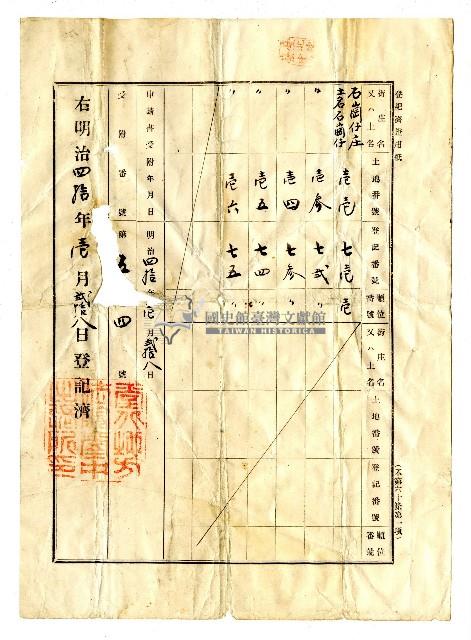 登記濟證用紙
街庄名又ハ土名 土地番號 登記番號 順位番號 街庄名又ハ土名 土地番號 登記番號 順位番號
石崗仔庄土名石崗仔 壱壱 七壱 壱
〃 壱参 七弐 〃
〃 壱四 七参 〃
〃 壱五 七四 〃
〃 壱六 七五 〃
申請書受附年月日 明治四拾年壱月弐拾八日
受附番號 第五四號
右明治四拾年壱月弐拾八日登記濟
國史館臺灣文獻館
TAIWAN HISTORICA